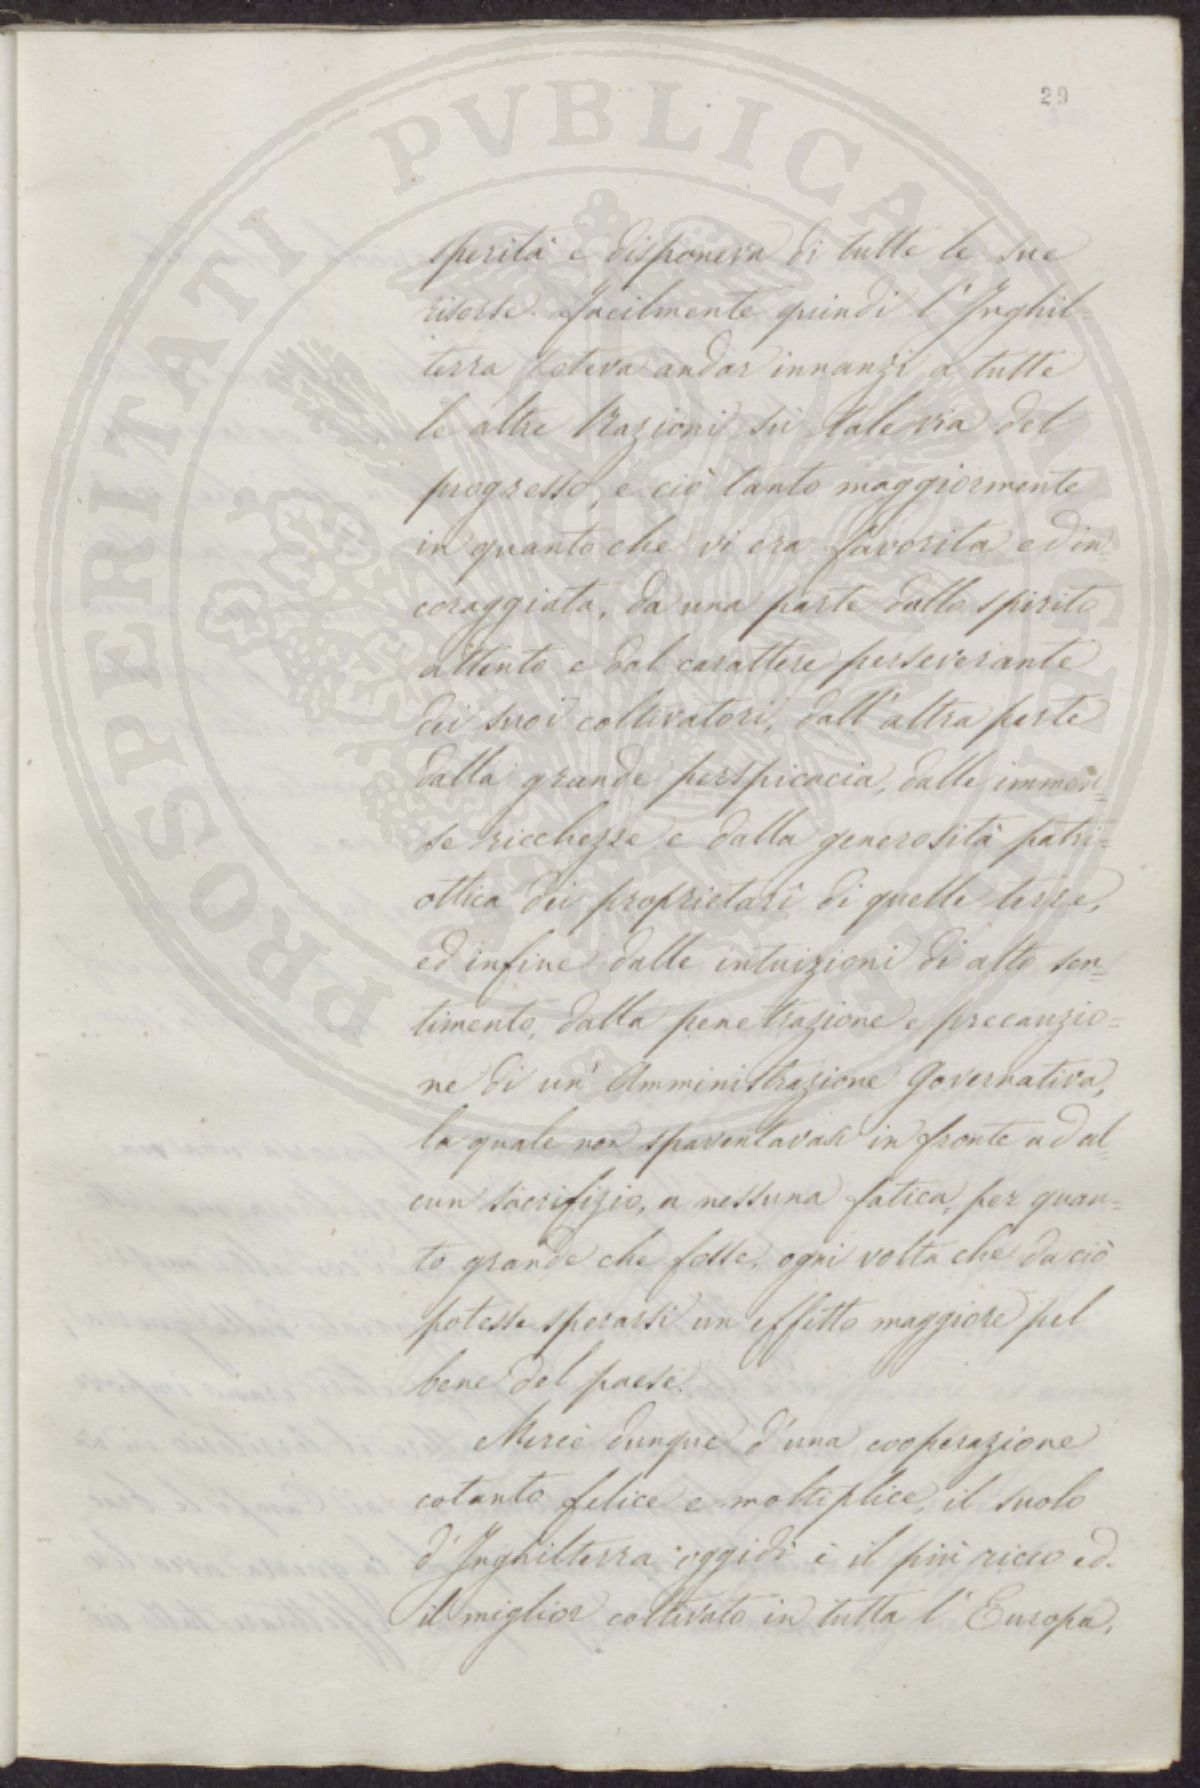 29
PROSPERITATI PVBLICAE AVGENDAE
sperità e disponeva di tutte le sue
risorse. Facilmente quindi l'Inghil=
terra poteva andar innanzi a tutte
le altre Nazioni su tale via del
progresso, e ciò tanto maggiormente
in quanto che vi era favorita ed in=
coraggiata, da una parte dallo spirito
attento e dal carattere perseverante
dei suoi coltivatori, dall'altra parte
dalla grande perspicacia, dalle immen=
se ricchezze e dalla generosità patri=
ottica dei proprietarî di quelle terre,
ed infine dalle intuizioni di alto sen=
timento, dalla penetrazione e precauzio=
ne di un'Amministrazione Governativa,
la quale non spaventavasi in fronte ad al=
cun sacrifizio, a nessuna fatica, per quan=
to grande che fosse, ogni volta che da ciò
potesse sperarsi un effetto maggiore pel
bene del paese.
Mercè dunque d'una cooperazione
cotanto felice e moltiplice, il suolo
d'Inghilterra oggidì è il più ricco ed
il miglior coltivato in tutta l'Europa,